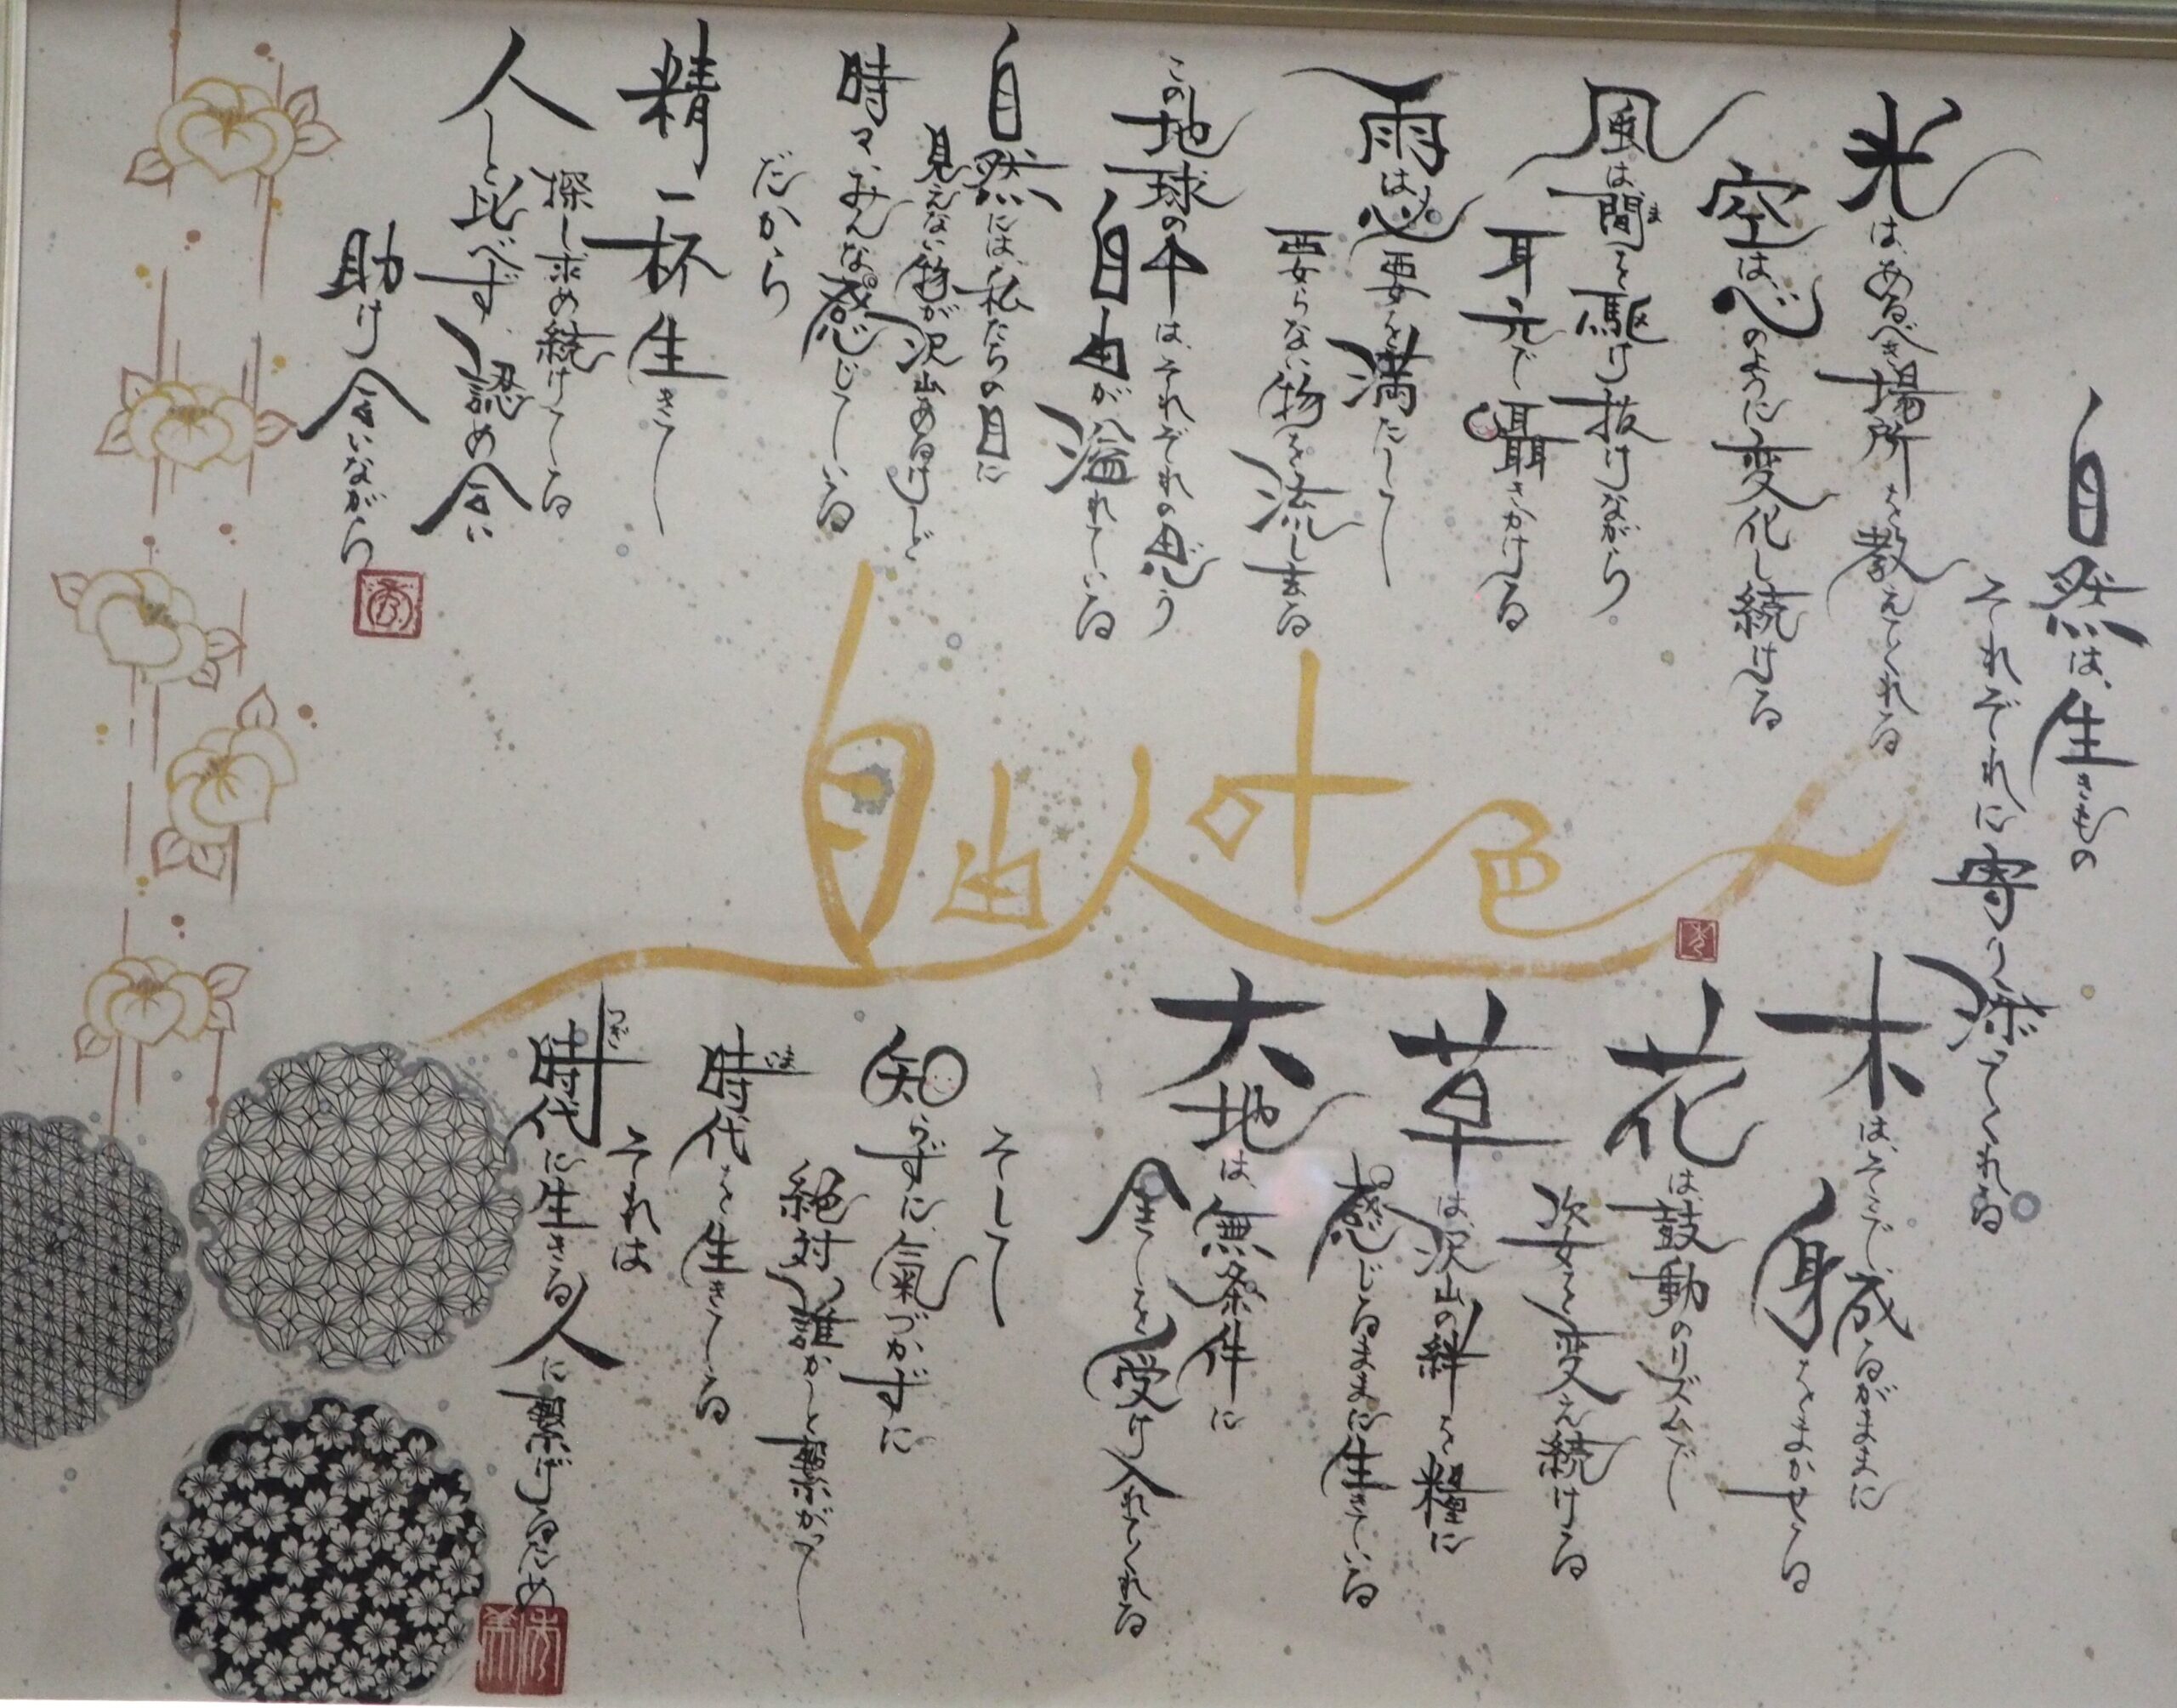 自然は、生きもの
それぞれに寄り添ってくれる
光は、あるべき場所を教えてくれる
空は、心のように変化し続ける
風は、間を駆け抜けながら
ま
耳元で囁きかける
雨は、必要を満たして
要らない物を流し去る
この地球の中は、それぞれの思う
自由が溢れている
自然には、私たちの目に
見えない物が沢山あるけど
時々、みんな感じている
だから
精一杯生きて
探し求め続けてる
人と比べず、認め合い
助け合いながら
自由人十色
木は、そこで、成るがままに
身をまかせてる
花は、鼓動のリズムで
次々と変え続ける
草は、沢山の絆を糧に
感じるままに生きている
大地は、無条件に
全てを受け入れてくれる
そして
知らずに、氣づかずに
絶対、誰かと繋がって
時代を生きてる
いま
それは
時代に生きる人に繋げるため
つぎ